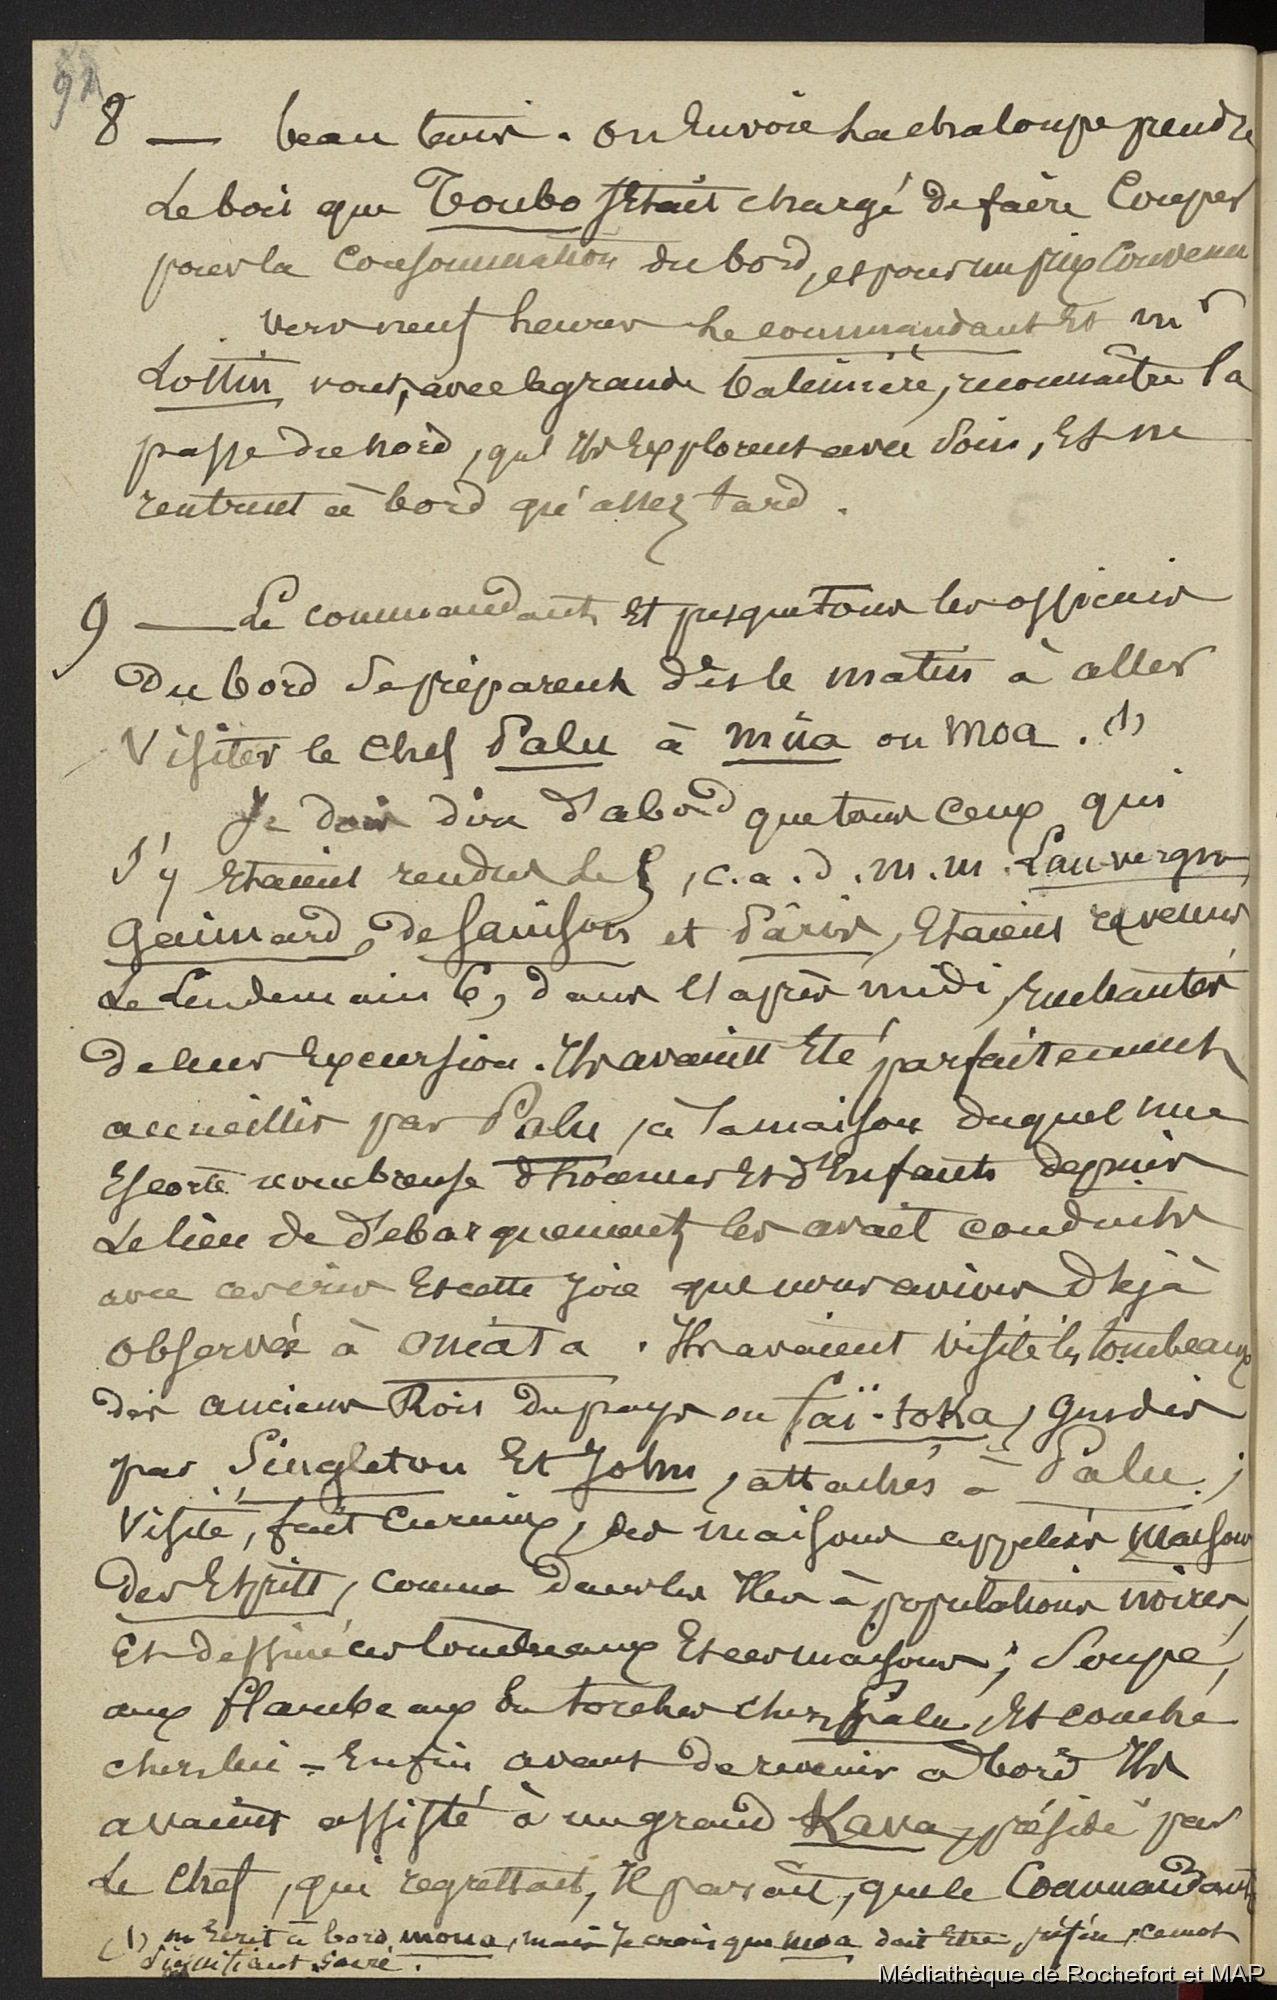 92
8 — beau tems. on Envoie La chaloupe prendre
Le bois que Toubo s'Etait chargé de faire Couper
pour la Consommation du bord, et pour un prix Convenu
Vers neuf heures Le commandant Et mr
Lottin vont, avec la grande baleinière, reconnaître la
passe du nord, qu'Ils Explorent avec Soin, Et ne
rentrent à bord qu'assez tard.
9 — Le commandant Et presque tous les officiers
Du bord Se préparent dès le matin à aller
Visiter le chef Palu à müa ou moa. (1)
Je dois dire d'abord que tous ceux qui
s'y Etaient rendus Le 5, c.a.d. m.m. Lauvergne
Gaimard, de Sainson et Pâris, Etaient revenus
Le Lendemain 6, dans l'après midi, Enchantés
de leur Excursion. Ils avaient Eté parfaitement
accueillis par Palu, à la maison duquel une
Escorte nombreuse d'hommes Et d'Enfants depuis
Le lieu de débarquement les avait conduits
avec ces cris Et cette joie que nous avions déjà
observée à onéata. Ils avaient visité les tombeaux
des anciens Rois du pays ou faï-toka, guidés
par Singleton Et John, attachés à Palu;
Visité, fait curieux, des maisons appelées maisons
des Esprits, comme dans les Iles à populations noires,
Et dessiné ces tombeaux Et ces maisons; Soupé,
aux flambeaux En torches chez Palu, Et couché
chez lui - Enfin avant de revenir a bord Ils
avaient assisté à un grand Kava, présidé par
Le chef, qui regrettait, Il paraît, que le Commandant
(1) on Ecrit à bord moua, mais Je crois que moa doit Etre préféré, ce mot
signifiant Sacré.
Médiathèque de Rochefort et MAP